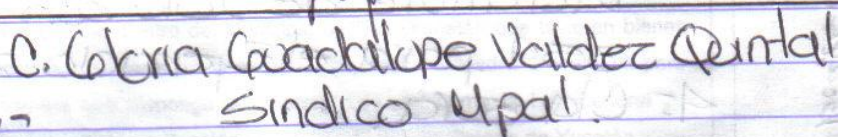 C. Gloria Guadalupe Valdez Quintal
Sindico Mpal.